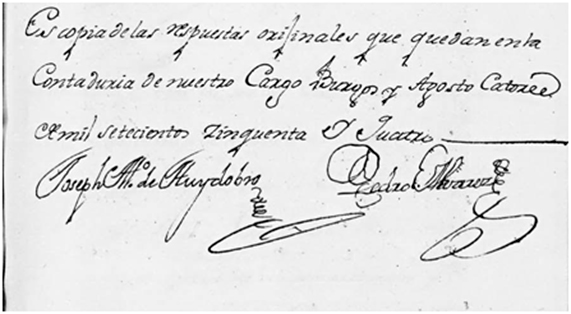 Es copia de las respuestas originales que quedan enta
Contaduria de nuestro Cargo Burgos y Agosto Catorce
de mil setecientos zinquenta y quatro
Joseph M.º de Huydobro Pedro Alvarez